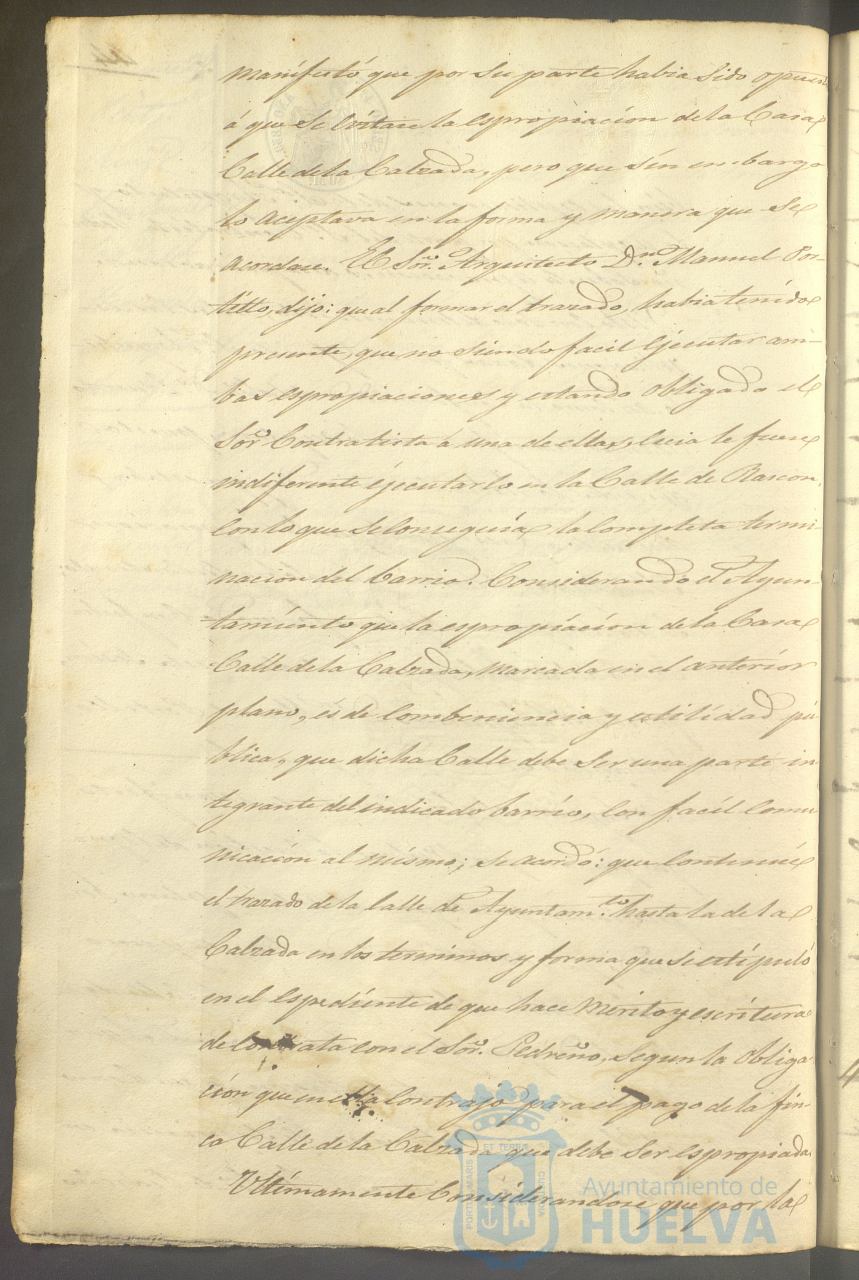 manifestó que por su parte habia sido opues
á que se evitase la espropiación de la Casa
Calle de la Calzada, pero que sin embargo
lo aceptava en la forma y manera que se
acordase. El Sor. Arquitecto Dn. Manuel Por-
tillo, dijo: que al formar el trazado, habia tenido
presente, que no siendo facil ejecutar am-
bas espropiaciones y estando obligado el
Sor. Contratista á una de ellas, le fuese
indiferente ejecutarlo en la Calle de Rascon,
con lo que se conseguia la completa termi
nación del barrio. Considerando el Ayun-
tamiento que la espropiación de la Casa
Calle de la Calzada, marcada en el anterior
plano, es de combeniencia y utilidad pú
blica, que dicha Calle debe ser una parte in
tegrante del indicado barrio, con facil comu
nicación al mismo; se acordó: que continúe
el trazado de la calle de Ayuntamto. hasta la de la
Calzada en los terminos y forma que se estipuló
en el espediente de que hace merito y escritura
de contrata con el Sor. Pedreño, segun la obliga
ción que en ella contrajo para el pago de la fin
ca Calle de la Calzada que debe ser espropiada.
Ultimamente considerandose que por la
PORTUS MARIS ET TERRE CUSTODIA
Ayuntamiento de
HUELVA